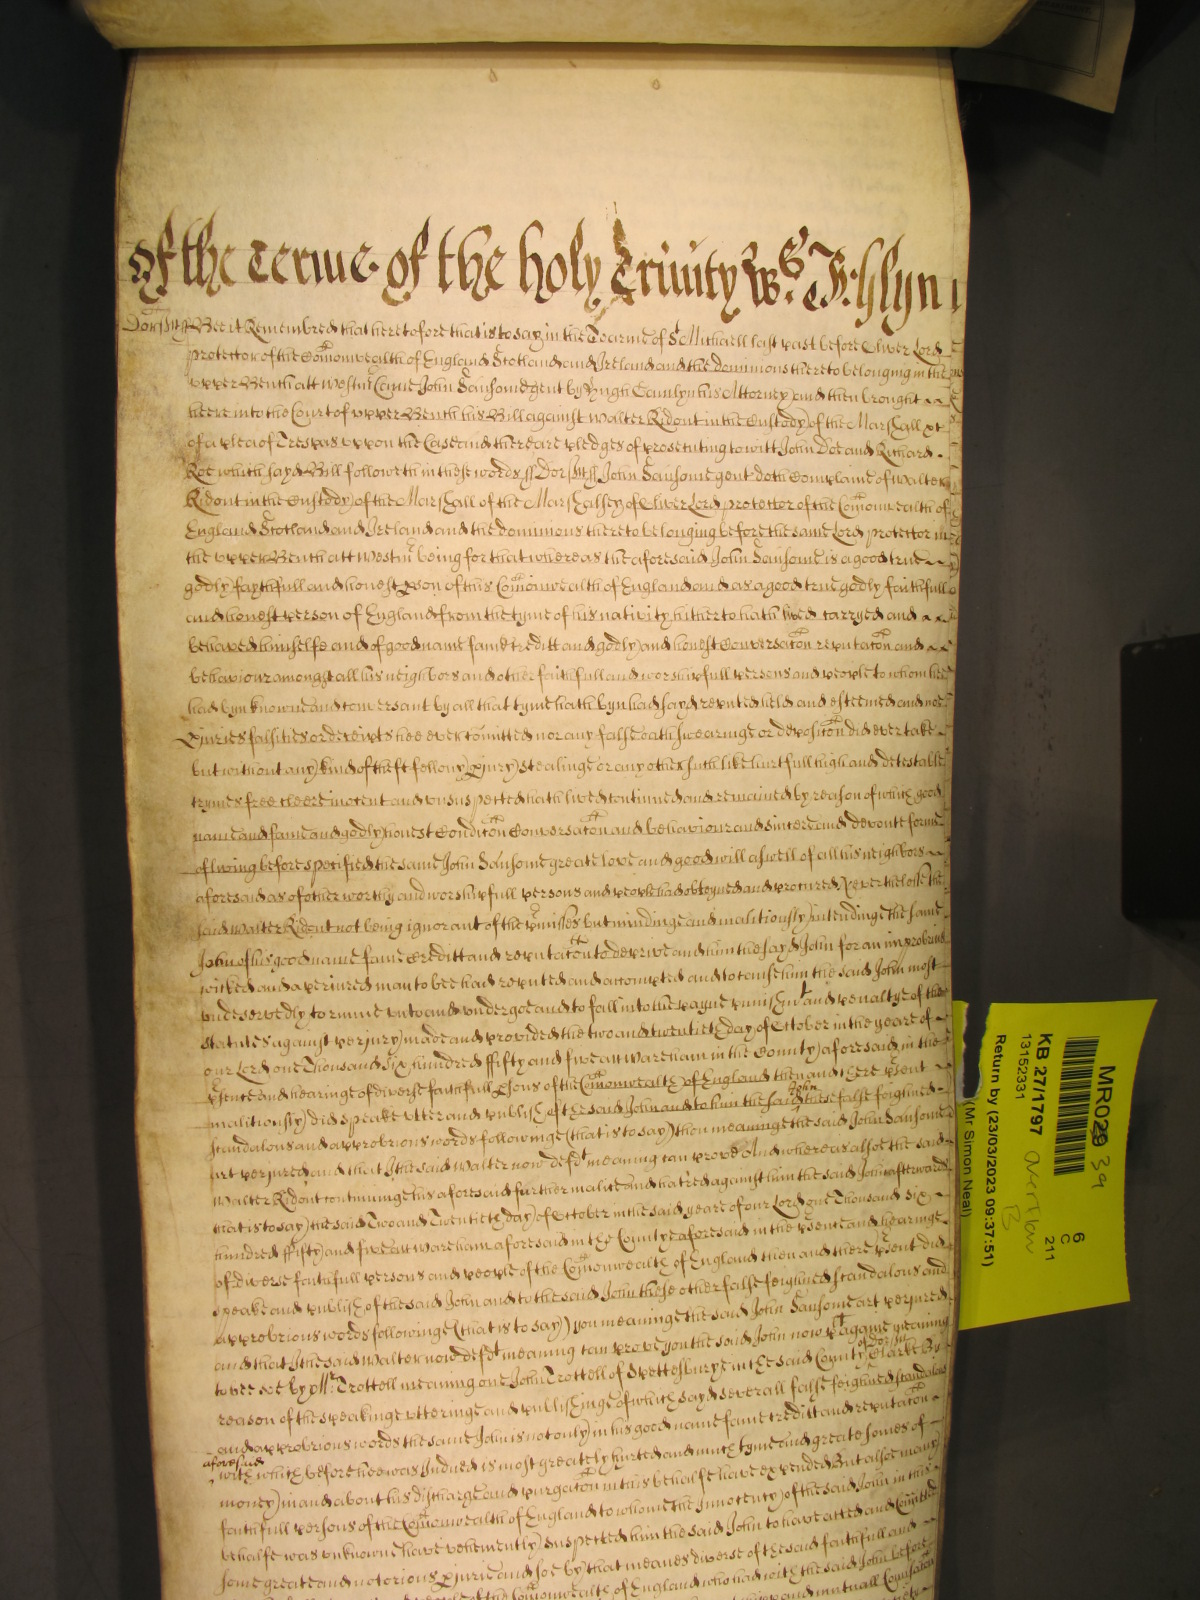 Of the Terme of the holy Trinity
Dorsett ss Bee it Remembred that heretofore that is to say in the Tearme of St Michaell last past before Oliver Lord
Protector of the Comonwealth of England Scotland and Ireland and the dominions thereto belonging in the
upper Bench att Westmr Came John Sansome gent by Hugh Camlyn his Attorney and then brought
heere into the Court of upper Bench his Bill against Walter Ridout in the Custody of the Marshall &c
of a plea of Trespas upon the Case and there are pledges of prosecuting to witt John Doe and Richard
Roe which sayd Bill followeth in these words ss Dorsett ss John Sansome gent doth Complaine of Walter
Ridout in the Custody of the Marshall of the Marshalsey of Oliver Lord protector of the Comonwealth of
England Scotland and Ireland and the dominions thereto belonging before the same Lord protector in
the upper Bench att Westmr being for that whereas the aforesaid John Sansome is a good true
godly faythfull and honest pson of this Comonwealth of England and as a good true godly faithfull
and honest person of England from the tyme of his nativity hitherto hath lived carryed and
behaved himselfe and of good name fame creditt and godly and honest Conversacon reputacon and
behaviour amongst all his neighbors and other faithfull and worshipfull persons and people to whom hee
had byn knowne and conversant by all that tyme hath byn had sayd reputed held and esteemed and noe
Pjuries falsities or deceipts hee ever comitted nor any false oath swearinge or deposicon did ever take
but without any kind of theft fellony pjury stealinge or any other such like hurtfull high and detestable
crymes free cleere inocent and unsuspected hath lived continued and remained by reason of which good
name and fame and godly honest Condicon Conversacon and behaviour and sincere and devoute forme
of living before specified the same John Sansome greate love and good will aswell of all his neighbors
aforesaid as of other worthy and worshipfull persons and people had obteyned and procured Neverthelesse the
said Walter Ridout not being ignorant of the pmisses but mindinge and malitiously intendinge the same
John of his good name fame Creditt and reputacon to deprive and him the sayd John for an
wicked and a perjured man to bee had reputed and accompted and to cause him the said John most
undeservedly to runne into and undergoe and to fall into the payne punishmt and penaltye of the
statutes against perjury made and provided the two and twentieth day of October in the yeare of
our Lord one Thousand six hundred ffifty and five att Wareham in the County aforesaid in the
psence and hearinge of diverse faithfull psons of the Comonwealth of England then and there psent
malitiously did speake utter and publish of the said John and to him the said John these false feighned
scandalous and approbrious words followinge (that is to say) thou meaninge the said John Sansome
art perjured and that I the said Walter now defdt meaning can prove And whereas alsoe the said
Walter Ridout continuinge his aforesaid further malice and hatred against him the said John afterwards
that is to say the said Two and Twentieth day of October in the said yeare of our Lord one Thousand six
hundred ffifty and five att Wareham aforesaid in the County aforesaid in the psence and hearinge
of diverse faithfull persons and people of the Comonwealth of England then and there psent did
speake and publish of the said John and to the said John these other false feighned scandalous and
approbrious words followinge (that is to say) you meaninge the said John Sansome art perjured
and that I the said Walter now defdt meaning can prove you the said John now plt againe meaning
to bee soe by Mr Trottell meaning one John Trottell of Spettesburye in the said County of Dorsett Clarke By
reason of the speakinge utteringe and publishinge of which sayd severall false feighned scandalous
and approbrious words the same John is not only in his good name fame creditt and reputacon
aforesaid with which before hee was Indued is most greately hurted and much tyme and greate somes of
money in and about his discharge and purgacon in this behalfe have expended But alsoe many
faithfull persons of the Comonwealth of England to whome the Innocency of the said John in this
behalfe was unknowne have vehemently suspected him the said John to have acted and comitted
some greate and notorious pjurie and soe by that meanes diverse of the said faithfull and
of the Comonwealth of England who had with the said John before
and mutuall
MR029 39
6
C
211
KB 27/1797
13152331
Overflow
B
Return by (23/03/2023 09:37:51)
(Mr Simon Neal)